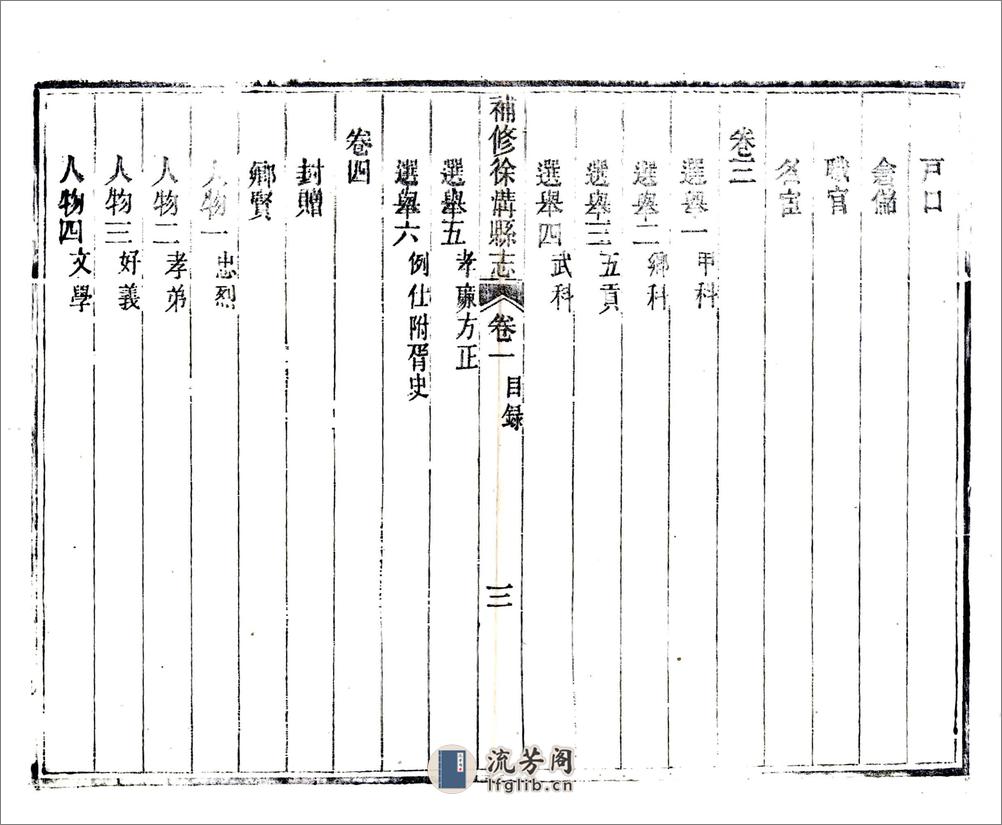 戶口
倉儲
職官
名宦
卷三
選舉一 甲科
選舉二 鄉科
選舉三 五貢
選舉四 武科
補修徐溝縣志 卷一 目録 三
選舉五 孝廉方正
選舉六 例仕附胥史
卷四
封贈
鄉賢
人物一 忠烈
人物二 孝弟
人物三 好義
人物四 文學
流芳阁
lfglib.cn